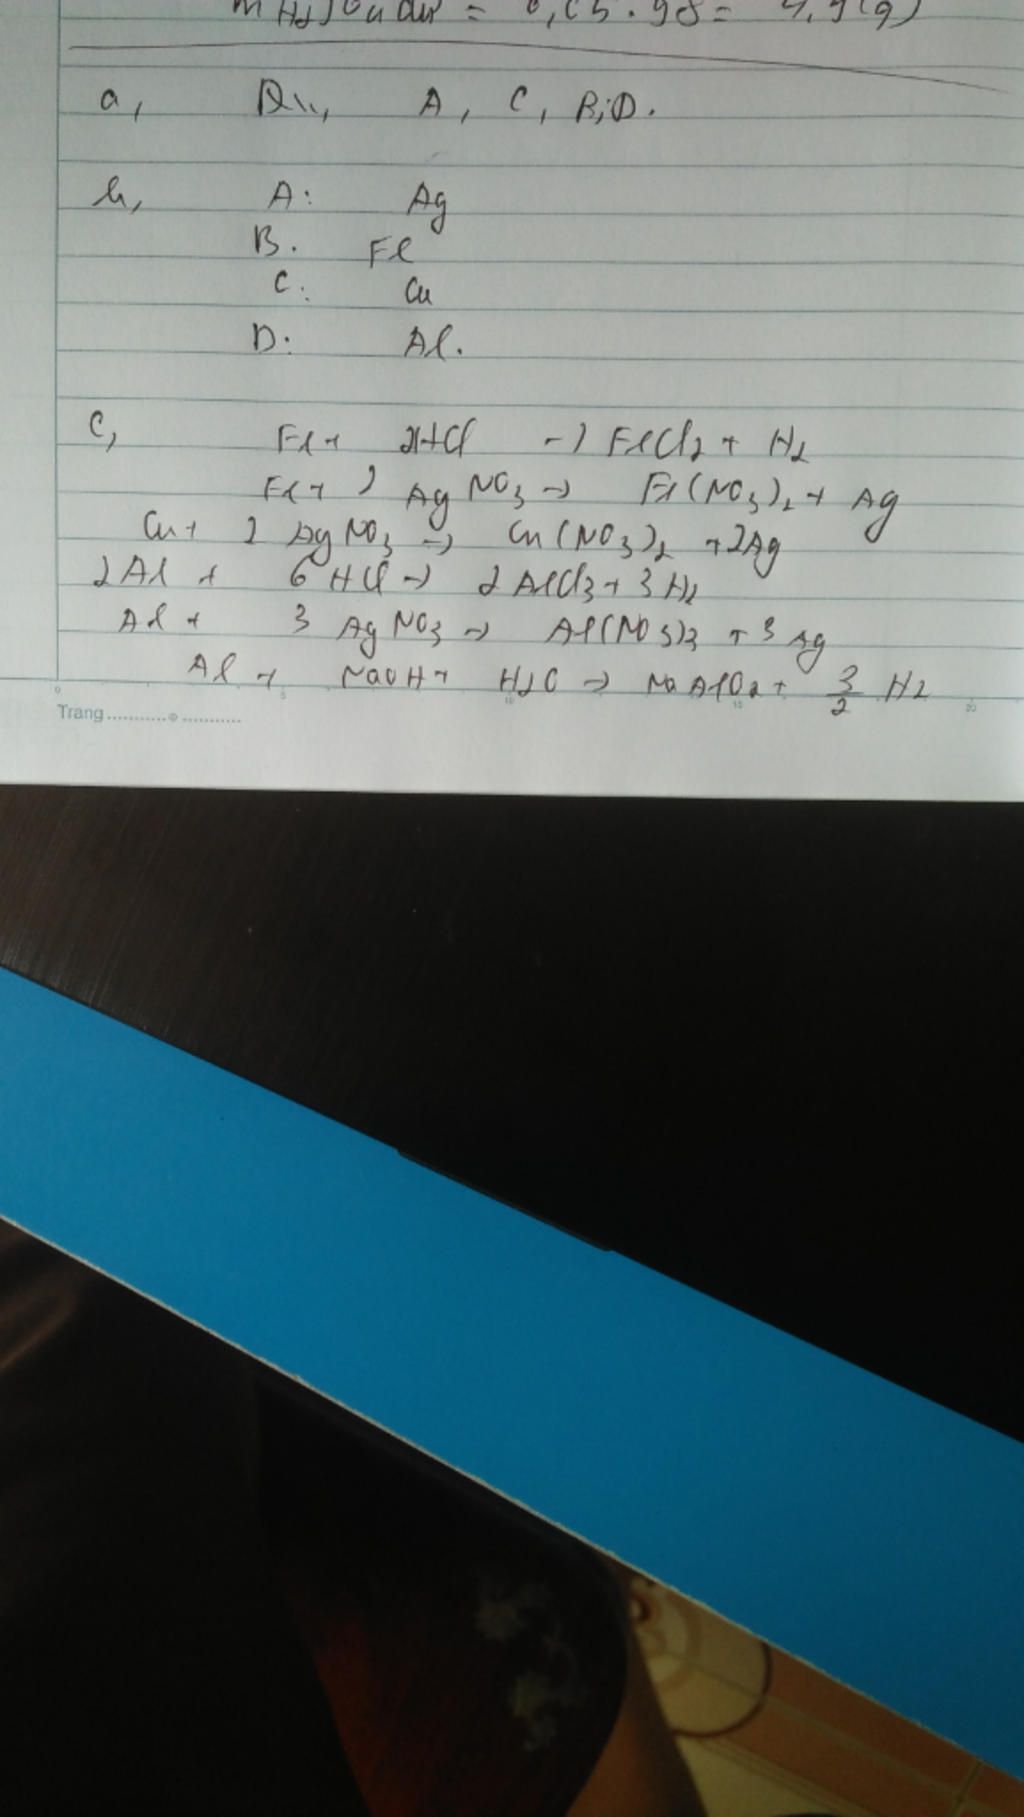 = 0,05.98 = 4,9(g)
a, A, C, B, D.
b, A: Ag
B. Fe
C: Cu
D: Al.
c, Fe + 2HCl -> FeCl2 + H2
Fe + 2 AgNO3 -> Fe(NO3)2 + Ag
Cu + 2 AgNO3 -> Cu(NO3)2 + 2Ag
2Al + 6 HCl -> 2 AlCl3 + 3 H2
Al + 3 AgNO3 -> Al(NO3)3 + 3 Ag
Al + NaOH + H2O -> NaAlO2 + 3/2 H2
0 5 10 15 20
Trang